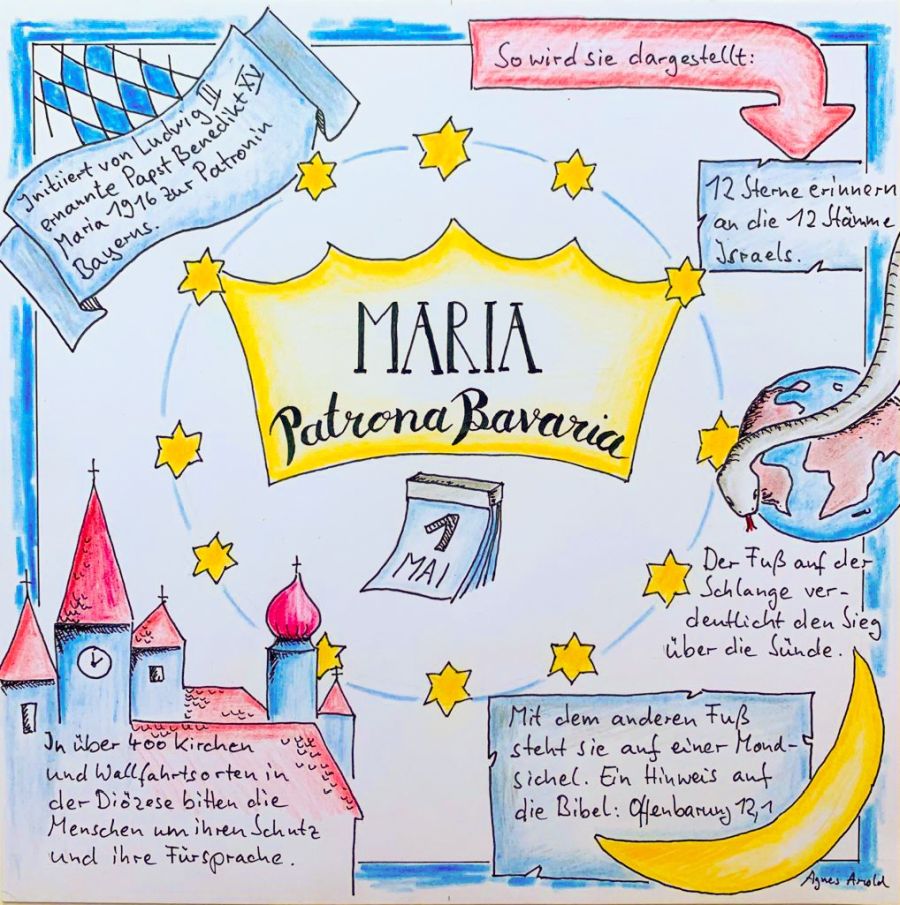 Initiiert von Ludwig III
ernannte Papst Benedikt XV
Maria 1916 zur Patronin
Bayerns.
So wird sie dargestellt:
12 Sterne erinnern
an die 12 Stämme
Israels.
MARIA
Patrona Bavaria
1
MAI
Der Fuß auf der
Schlange ver-
deutlicht den Sieg
über die Sünde.
In über 400 Kirchen
und Wallfahrtsorten in
der Diözese bitten die
Menschen um ihren Schutz
und ihre Fürsprache.
Mit dem anderen Fuß
steht sie auf einer Mond-
sichel. Ein Hinweis auf
die Bibel: Offenbarung 12,1
Agnes Arold